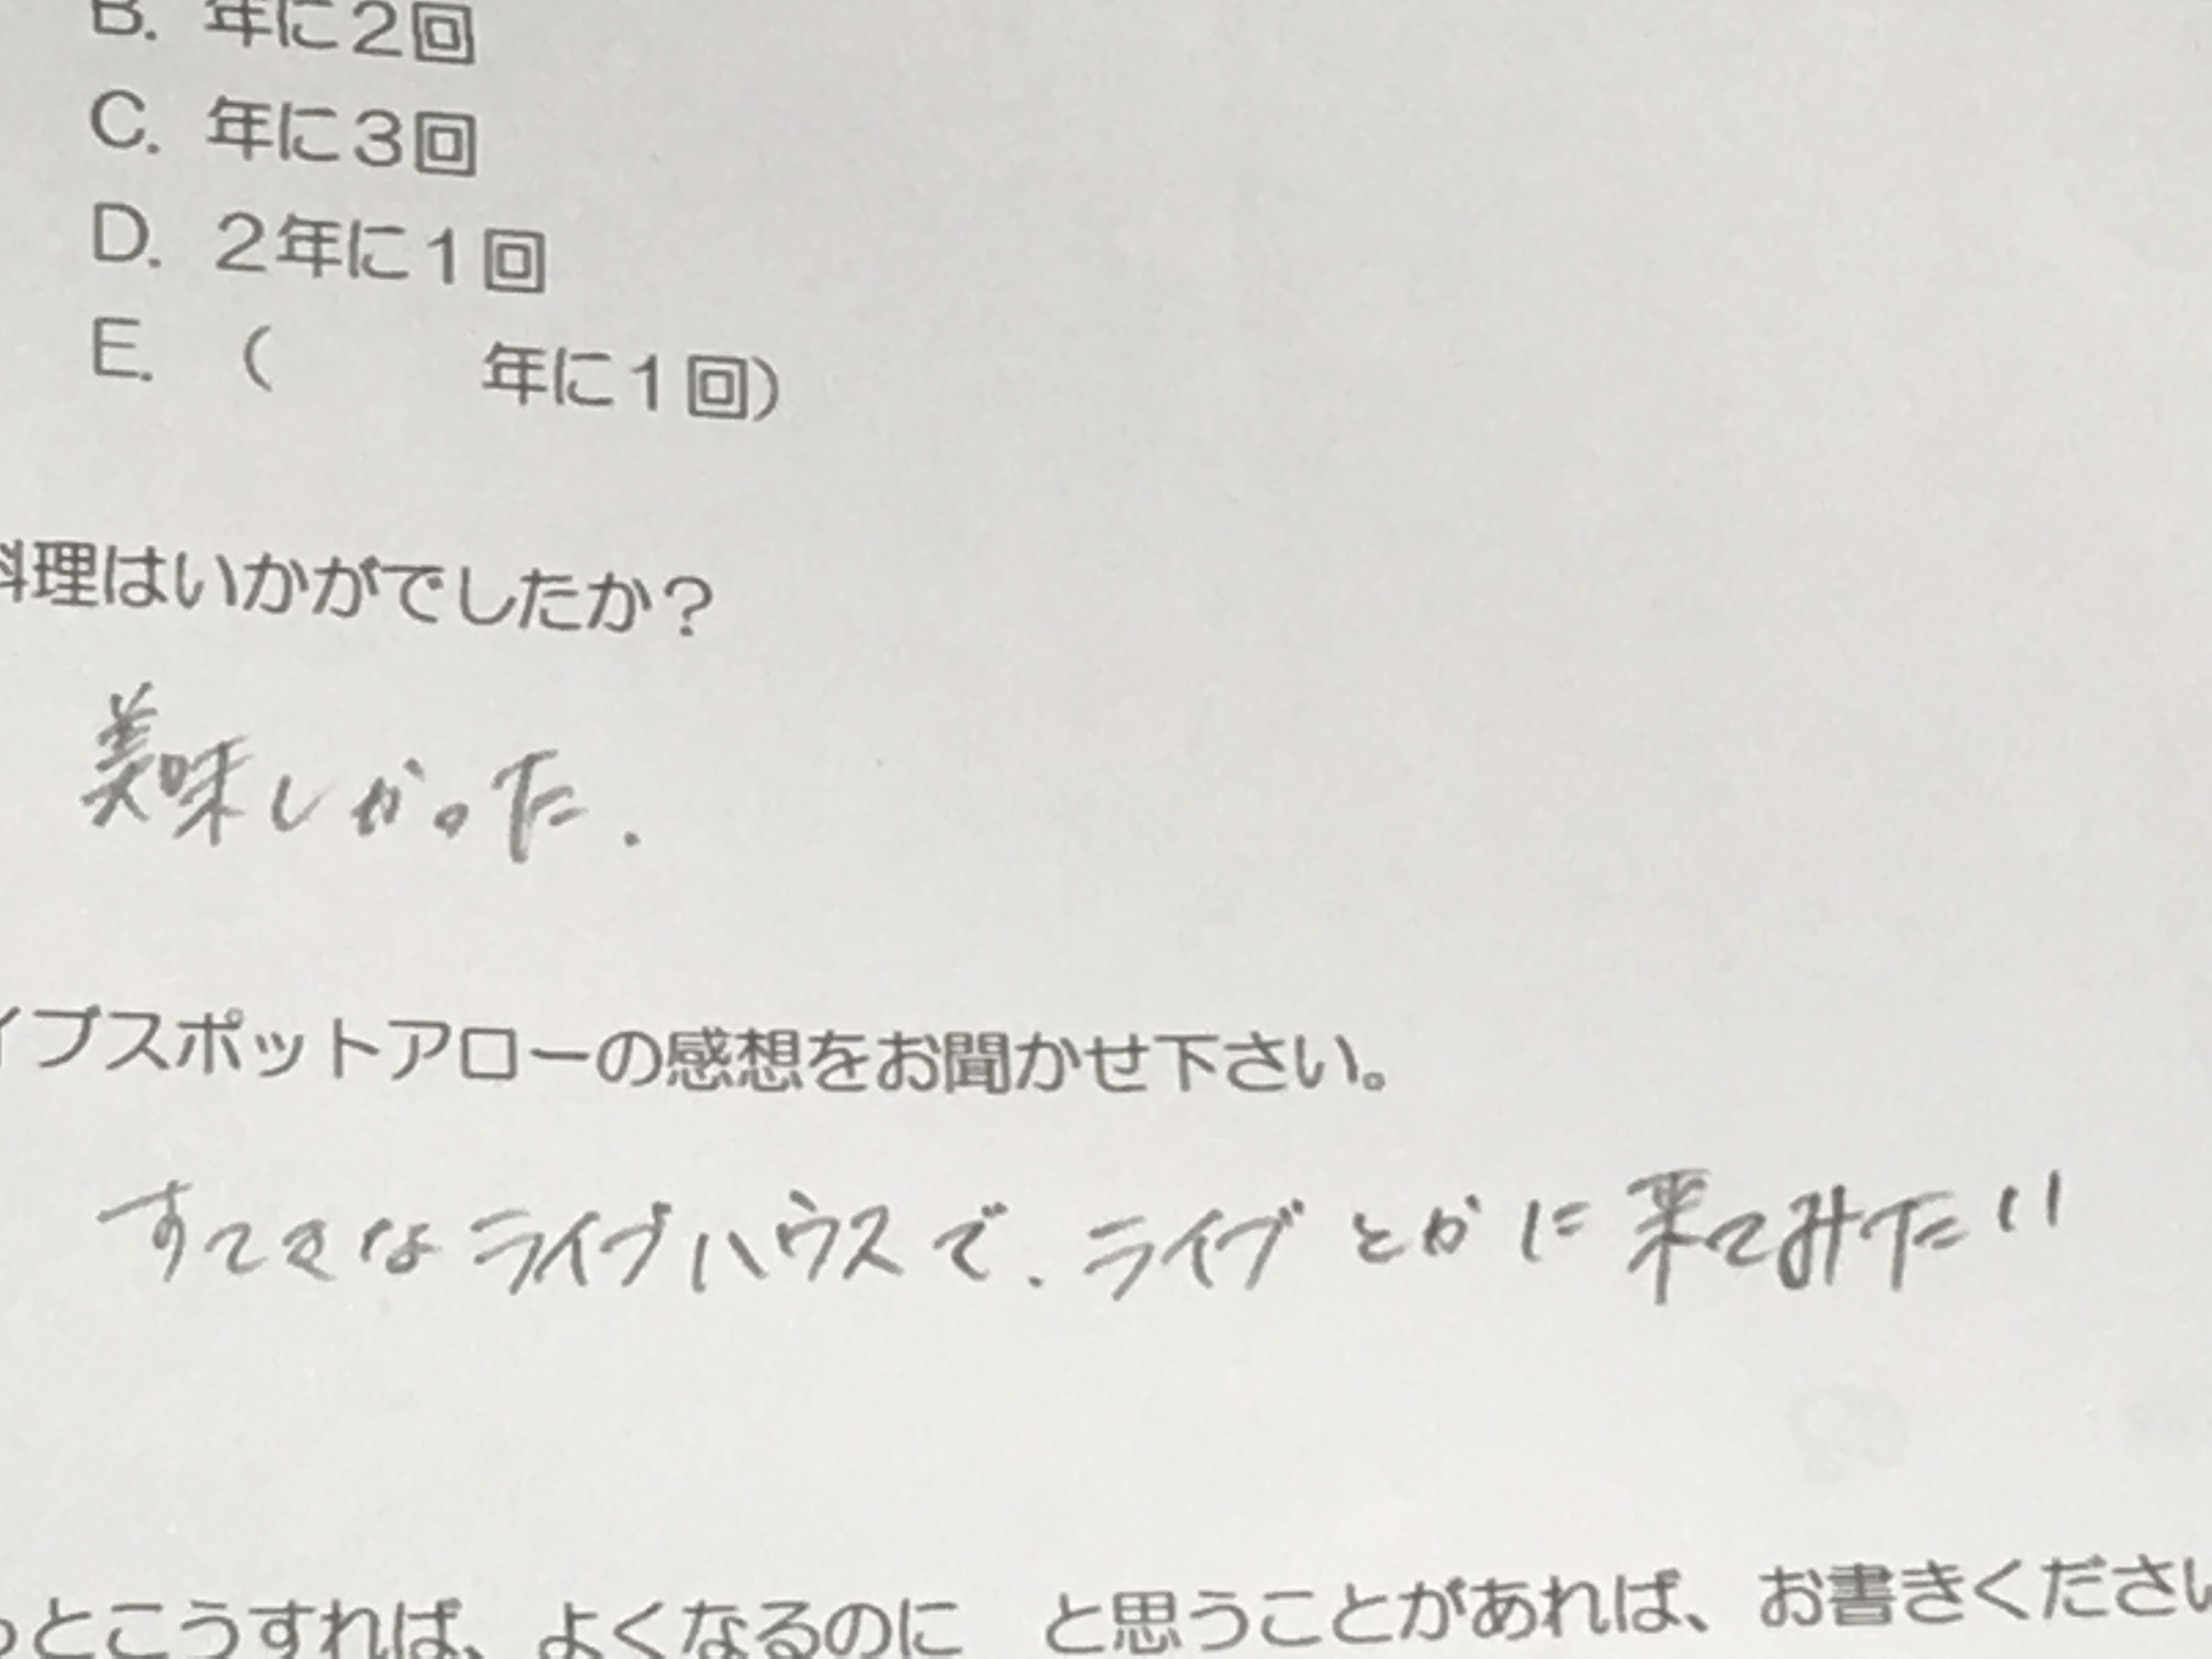 B. 年に2回
C. 年に3回
D. 2年に1回
E. (　　　年に1回)
料理はいかがでしたか？
美味しかった.
イブスポットアローの感想をお聞かせ下さい。
すてきなライブハウスで. ライブとかに来てみたい
っとこうすれば、よくなるのに　と思うことがあれば、お書きください